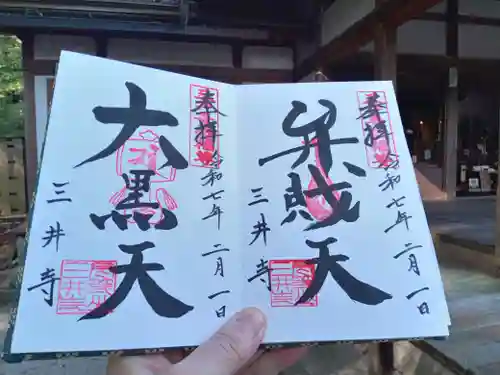 奉拝
令和七年二月一日
弁財天
三井寺
奉拝
令和七年二月一日
大黒天
三井寺